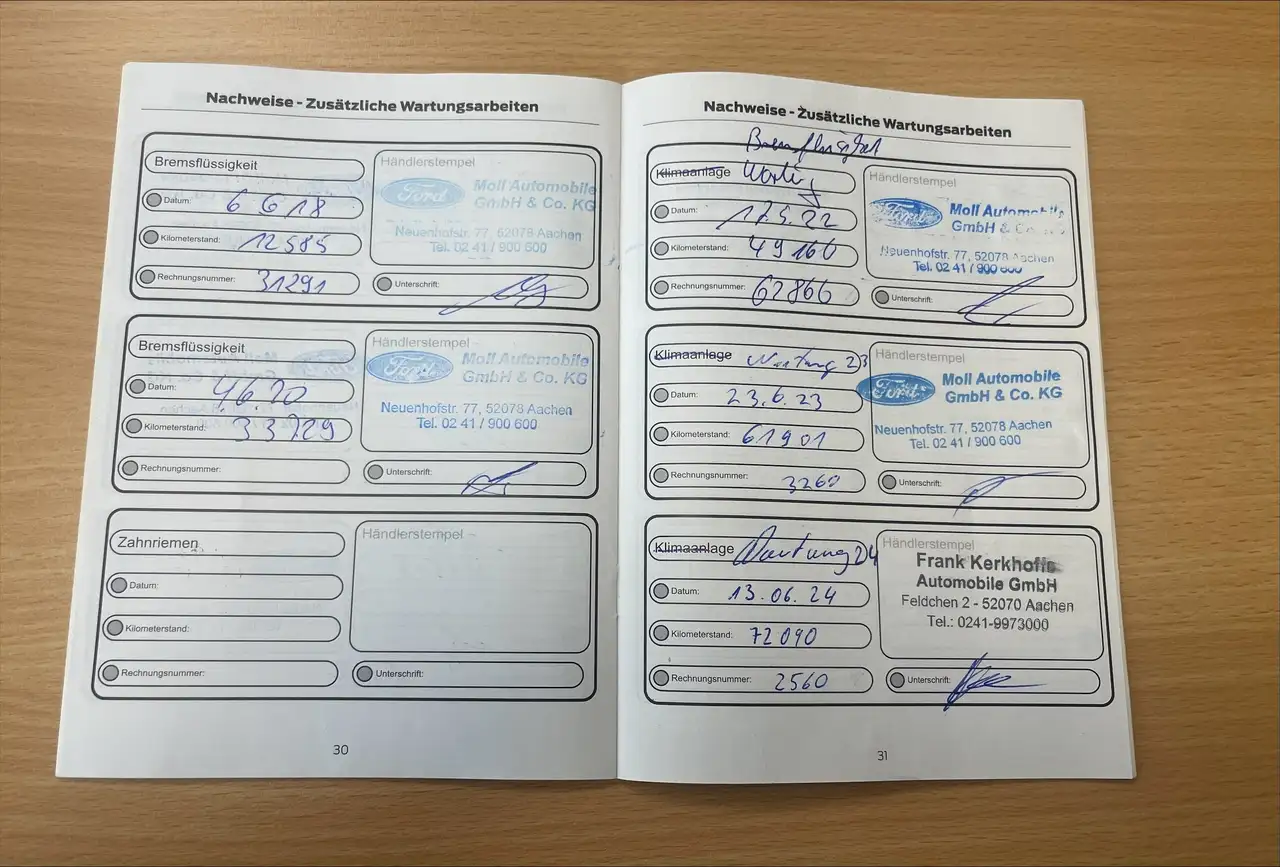 Nachweise - Zusätzliche Wartungsarbeiten
Bremsflüssigkeit
Datum: 6 6 18
Kilometerstand: 12585
Rechnungsnummer: 31291
Händlerstempel
Ford
Moll Automobile
GmbH & Co. KG
Neuenhofstr. 77, 52078 Aachen
Tel. 02 41 / 900 600
Unterschrift:
Bremsflüssigkeit
Datum: 4.6.20
Kilometerstand: 33729
Rechnungsnummer:
Händlerstempel
Ford
Moll Automobile
GmbH & Co. KG
Neuenhofstr. 77, 52078 Aachen
Tel. 02 41 / 900 600
Unterschrift:
Zahnriemen
Datum:
Kilometerstand:
Rechnungsnummer:
Händlerstempel
Unterschrift:
30
Nachweise - Zusätzliche Wartungsarbeiten
Klimaanlage
Datum: 17.5.22
Kilometerstand: 49160
Rechnungsnummer: 62866
Händlerstempel
Ford
Moll Automobile
GmbH & Co. KG
Neuenhofstr. 77, 52078 Aachen
Tel. 02 41 / 900 600
Unterschrift:
Klimaanlage Wartung 23
Datum: 23.6.23
Kilometerstand: 61901
Rechnungsnummer: 3260
Händlerstempel
Ford
Moll Automobile
GmbH & Co. KG
Neuenhofstr. 77, 52078 Aachen
Tel. 02 41 / 900 600
Unterschrift:
Klimaanlage Wartung 24
Datum: 13.06.24
Kilometerstand: 72090
Rechnungsnummer: 2560
Händlerstempel
Frank Kerkhoffs
Automobile GmbH
Feldchen 2 - 52070 Aachen
Tel.: 0241-9973000
Unterschrift:
31